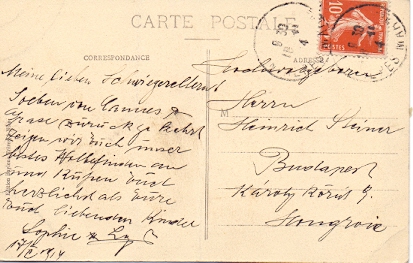 CARTE POSTALE
CORRESPONDANCE
ADRESSE
Meine lieben Schwiegereltern!
Soeben von Cannes &
Grasse zurückgekehrt
zeigen wir Euch unser
bestes Wohlbefinden an
und küssen Euch
herzlichst als Eure
Euch liebenden Kinder
Sophie &
1914
Hochwohlgeboren
M
Herrn
Heinrich Steiner
Budapest
Károly Körút 9.
Hongrie
10
POSTES